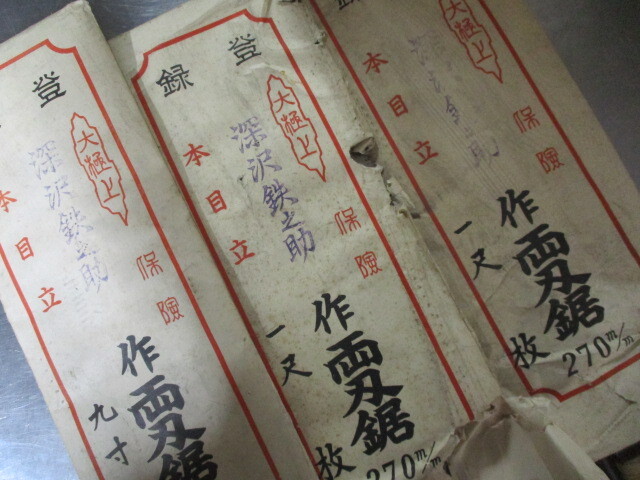 登
大極上
本目立
深沢鉄之助
保険
作両刃鋸
九寸
登録
大極上
本目立
深沢鉄之助
保険
作両刃鋸
一尺
枚
270m/m
録
大極上
本目立
保険
作両刃鋸
一尺
枚
270m/m